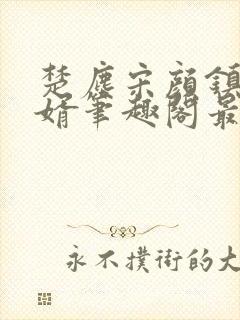 楚尘宋颜镇
婿笔趣阁最
永不撲街的大